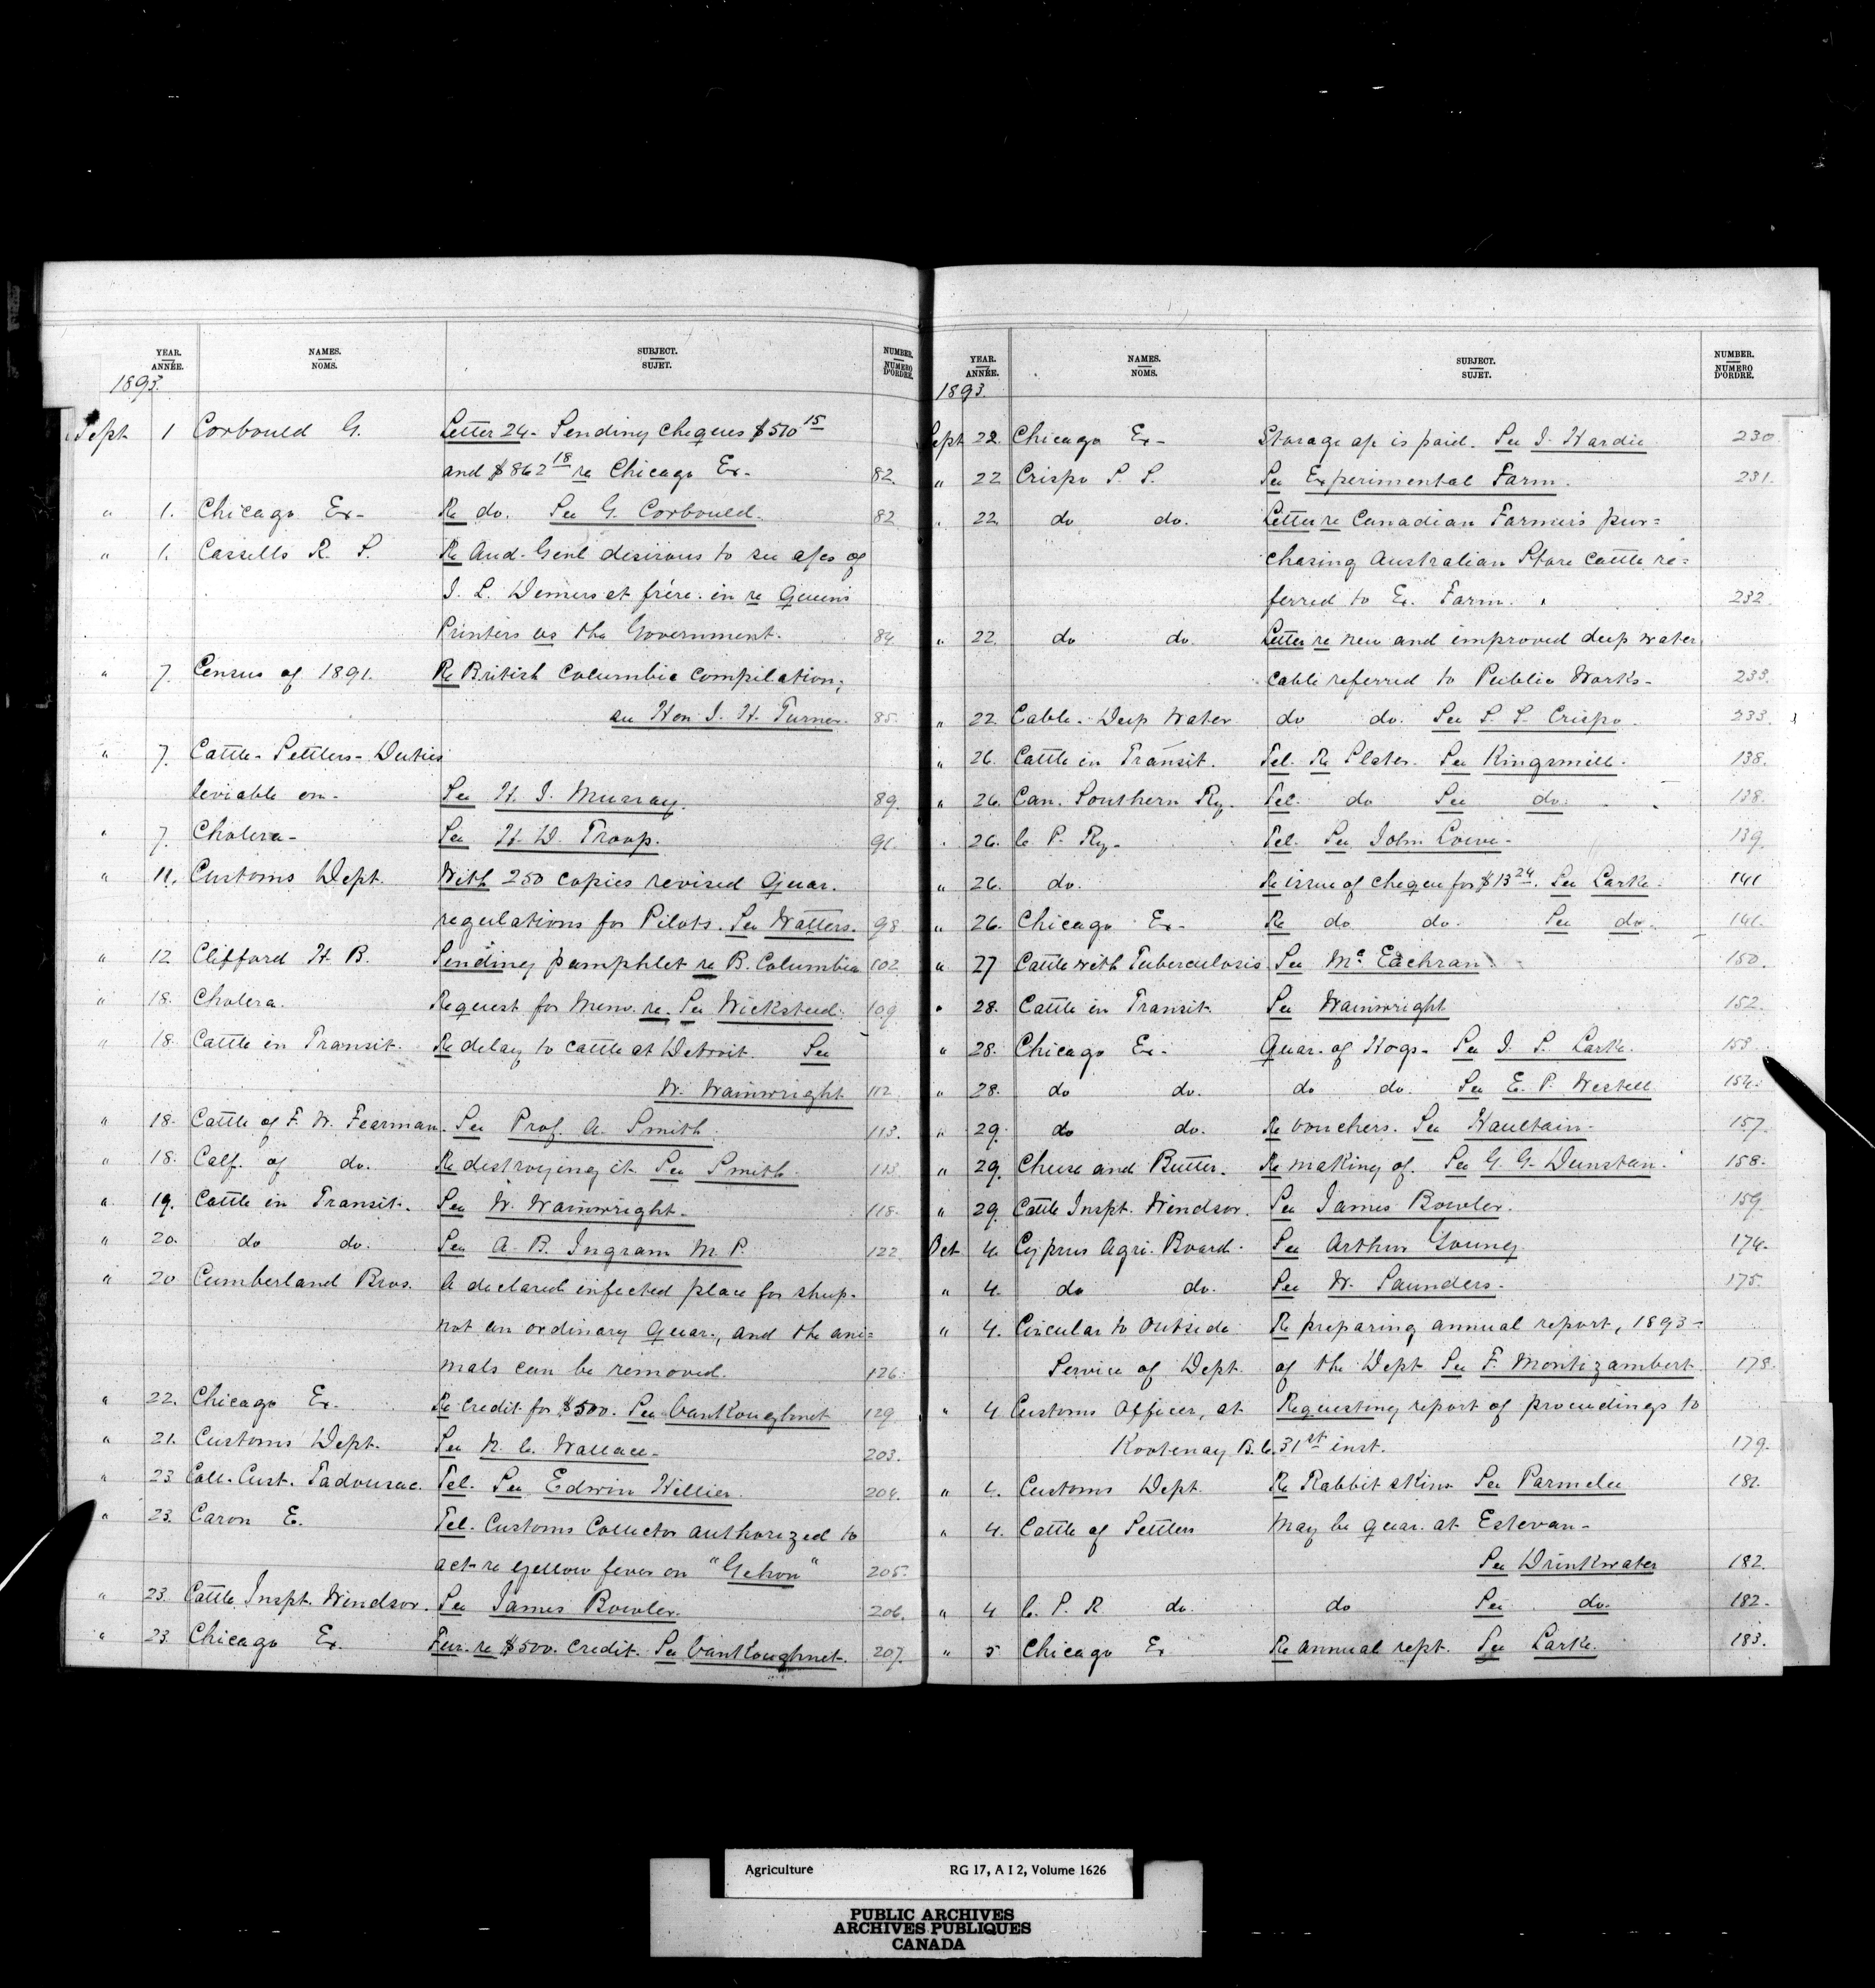 YEAR. NAMES. SUBJECT. NUMBER.
ANNÉE. NOMS. SUJET. NUMERO D'ORDRE.
1893.
Sept 1 Corbould G. Letter 24 - Sending cheques $510 15
and $862 18 re Chicago Ex- 82.
" 1. Chicago Ex- Re do. See G. Corbould. 82
" 1. Cassells R. S. Re Aud. Genl desirous to see a/cs of
J. L. Demers et frére. in re Queens
Printers vs the Government. 84
" 7. Census of 1891. Re British Columbia compilation;
see Hon J. H. Turner. 85.
" 7. Cattle - Settlers - Duties
leviable on - See H. J. Murray. 89.
" 7. Cholera - See H. D. Troop. 91.
" 11. Customs Dept. With 250 copies revised Quar.
regulations for Pilots. See Watters. 98
" 12 Clifford H. B. Sending pamphlet re B. Columbia 102
" 18. Cholera. Request for Memo. re. See Wicksteed. 109
" 18. Cattle in Transit. Re delay to cattle at Detroit. See
W. Wainwright 112
" 18. Cattle of F. W. Fearman. See Prof. A. Smith. 113.
" 18. Calf. of do. Re destroying it See Smith. 113
" 19. Cattle in Transit. See W. Wainwright - 118.
" 20. do do. See A. B. Ingram M. P. 122
" 20 Cumberland Bros. A declared infected place for sheep -
not an ordinary Quar., and the ani=
mals can be removed. 126.
" 22. Chicago Ex. Re credit for $500. See VanKoughnet 129
" 21. Customs Dept. See N. C. Wallace - 203.
" 23. Coll. Cust. Tadousac. Tel. See Edwin Hillier. 204.
" 23. Caron E. Tel. Customs Collector authorized to
act re yellow fever on "Gehon" 205.
" 23. Cattle Inspt. Windsor. See James Bowler. 206.
" 23. Chicago Ex. Fur. re $500. credit. See VanKoughnet. 207.
YEAR. NAMES. SUBJECT. NUMBER.
ANNÉE. NOMS. SUJET. NUMERO D'ORDRE.
1893.
Sept 22. Chicago Ex- Storage a/c is paid. See J. Hardie 230
" 22 Crispo S. S. See Experimental Farm. 231.
" 22. do do. Letter re Canadian Farmers pur=
chasing Australian Store Cattle re=
ferred to Ex. Farm. 232
" 22 do do. Letter re new and improved deep water
cable referred to Public Works - 233.
" 22 Cable - Deep Water do do. See S. S. Crispo. 233.
" 26. Cattle in Transit. Tel. Re Slater. See Kingsmill. 138.
" 26. Can. Southern Ry. Tel. do See do. 138.
" 26. C. P. Ry - Tel. See John Lowe - 139
" 26. do. Re issue of cheque for $13 24. See Larke. 141
" 26. Chicago Ex - Re do do. See do. 141.
" 27 Cattle with Tuberculosis See Mc Eachran. 150.
" 28. Cattle in Transit. See Wainwright 152.
" 28. Chicago Ex - Quar. of Hogs - See J. S. Larke. 153.
" 28. do do. do do. See E. P. Westell. 154.
" 29. do do. Re vouchers. See Haultain. 157.
" 29. Cheese and Butter. Re making of. See G. G. Dunstan. 158.
" 29. Cattle Inspt. Windsor. See James Bowler. 159
Oct 4. Cyprus Agri. Board. See Arthur Young. 174.
" 4. do do. See W. Saunders. 175.
" 4. Circular to outside Re preparing annual report, 1893 -
Service of Dept. of the Dept See F. Montizambert. 178.
" 4 Customs Officer, at Requesting report of proceedings to
Kootenay B. C. 31st inst. 179.
" 4. Customs Dept. Re Rabbit skins See Parmelee 181.
" 4. Cattle of Settlers May be quar. at Estevan -
See Drinkwater 182.
" 4 C. P. R. do. do See do. 182.
" 5 Chicago Ex Re annual rept. See Larke. 183.
Agriculture RG 17, A I 2, Volume 1626
PUBLIC ARCHIVES
ARCHIVES PUBLIQUES
CANADA